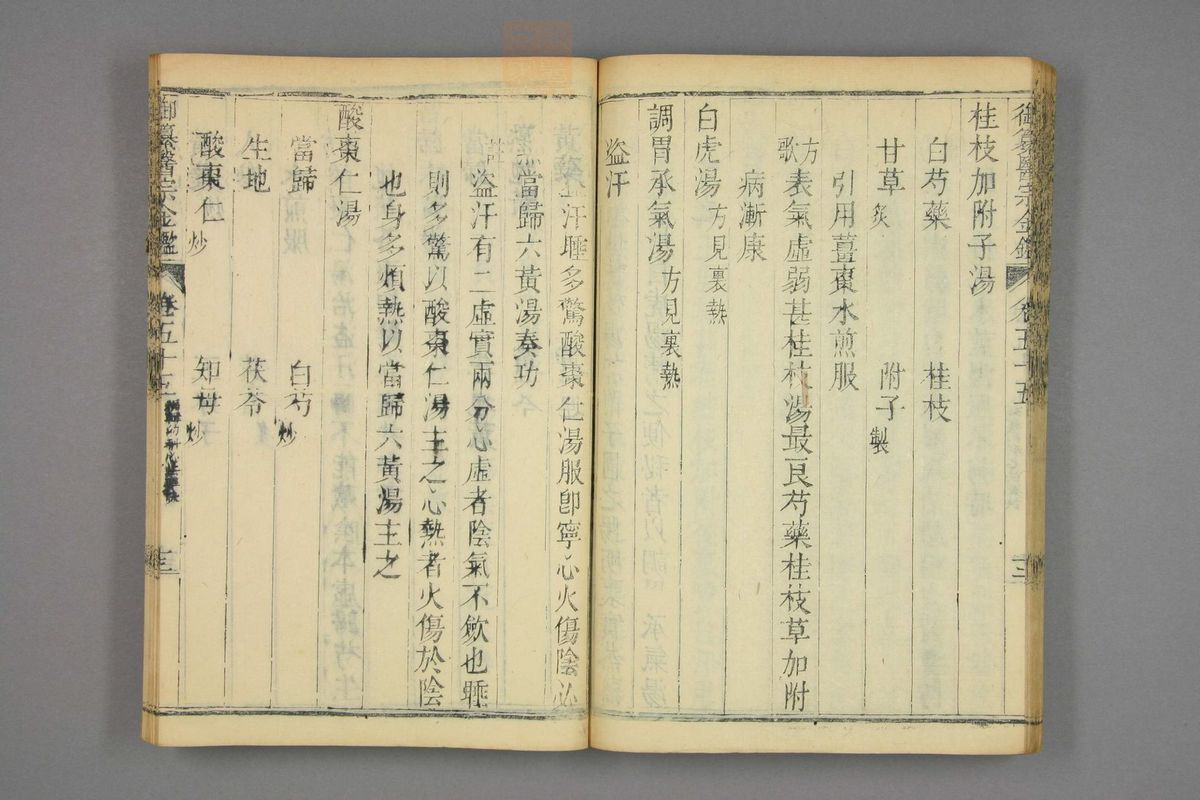 御纂醫宗金鑑 卷五十五 三
桂枝加附子湯
白芍藥 桂枝
甘草炙 附子製
引用薑棗水煎服
方歌 表氣虛弱甚桂枝湯最良芍藥桂枝草加附
病漸康
白虎湯方見裏熱
調胃承氣湯方見裏熱
盜汗
汗睡多驚酸棗仁湯服卽寧心火傷陰必
當歸六黃湯奏功
註 盜汗有二虛實兩分心虛者陰氣不歛也睡
則多驚以酸棗仁湯主之心熱者火傷於陰
也身多煩熱以當歸六黃湯主之
酸棗仁湯
當歸 白芍炒
生地 茯苓
酸棗仁炒 知母炒
御纂醫宗金鑑 卷五十五 三